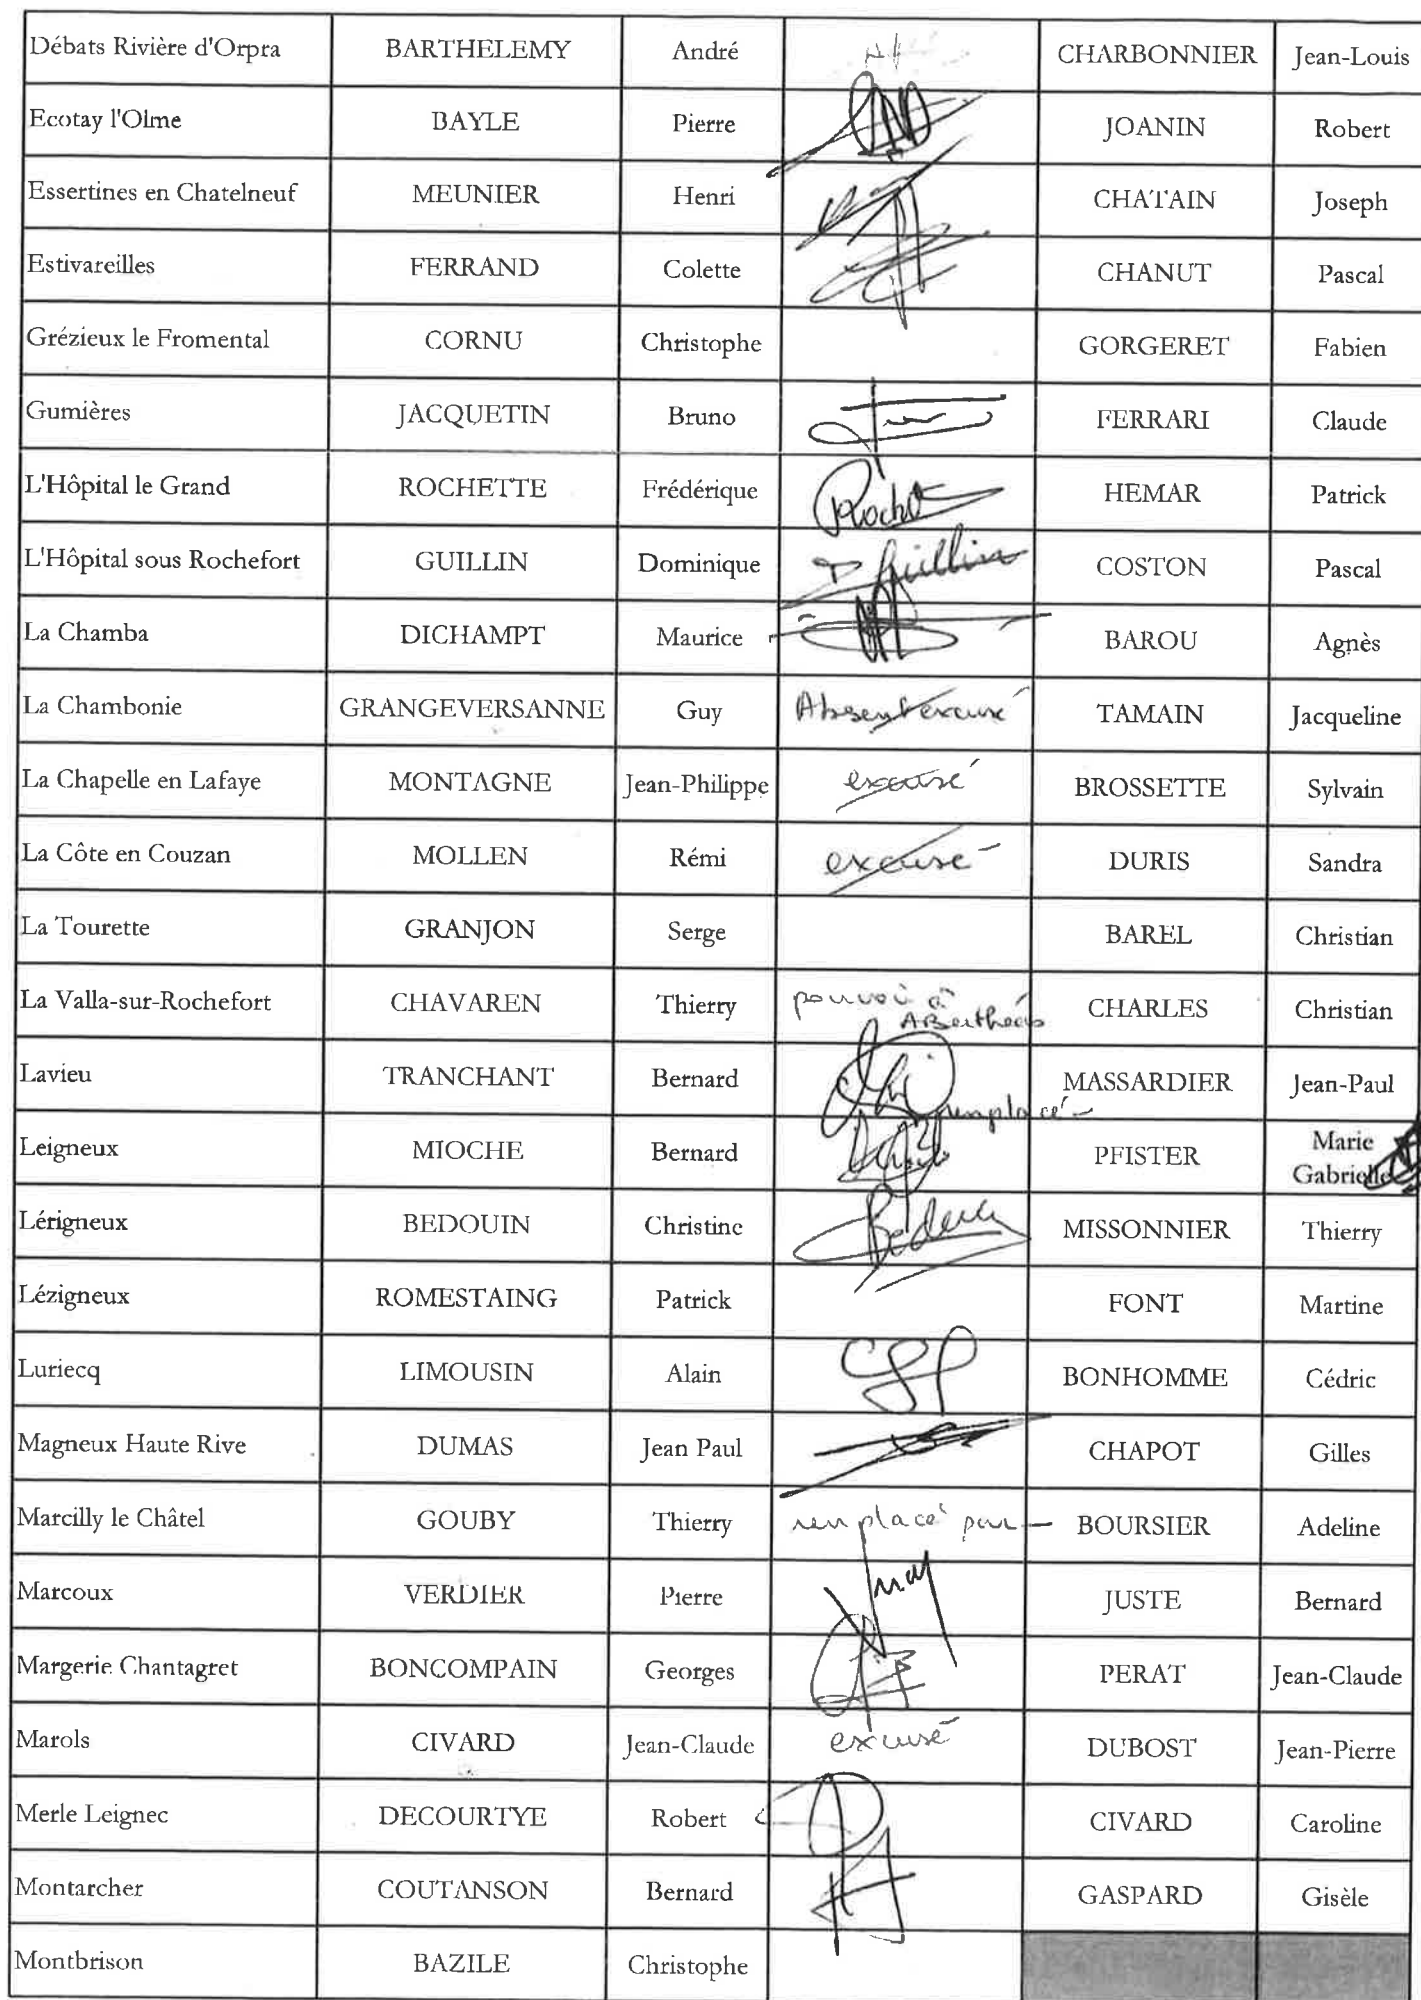 Débats Rivière d'Orpra BARTHELEMY André CHARBONNIER Jean-Louis
Ecotay l'Olme BAYLE Pierre JOANIN Robert
Essertines en Chatelneuf MEUNIER Henri CHATAIN Joseph
Estivareilles FERRAND Colette CHANUT Pascal
Grézieux le Fromental CORNU Christophe GORGERET Fabien
Gumières JACQUETIN Bruno FERRARI Claude
L'Hôpital le Grand ROCHETTE Frédérique HEMAR Patrick
L'Hôpital sous Rochefort GUILLIN Dominique D Guillin COSTON Pascal
La Chamba DICHAMPT Maurice BAROU Agnès
La Chambonie GRANGEVERSANNE Guy Absent excusé TAMAIN Jacqueline
La Chapelle en Lafaye MONTAGNE Jean-Philippe excusé BROSSETTE Sylvain
La Côte en Couzan MOLLEN Rémi excusé DURIS Sandra
La Tourette GRANJON Serge BAREL Christian
La Valla-sur-Rochefort CHAVAREN Thierry pouvoir à CHARLES Christian
Lavieu TRANCHANT Bernard MASSARDIER Jean-Paul
remplacé
Leigneux MIOCHE Bernard PFISTER Marie
Gabrielle
Lérigneux BEDOUIN Christine MISSONNIER Thierry
Lézigneux ROMESTAING Patrick FONT Martine
Luriecq LIMOUSIN Alain BONHOMME Cédric
Magneux Haute Rive DUMAS Jean Paul CHAPOT Gilles
Marcilly le Châtel GOUBY Thierry remplacé par BOURSIER Adeline
Marcoux VERDIER Pierre JUSTE Bernard
Margerie Chantagret BONCOMPAIN Georges PERAT Jean-Claude
Marols CIVARD Jean-Claude excusé DUBOST Jean-Pierre
Merle Leignec DECOURTYE Robert CIVARD Caroline
Montarcher COUTANSON Bernard GASPARD Gisèle
Montbrison BAZILE Christophe